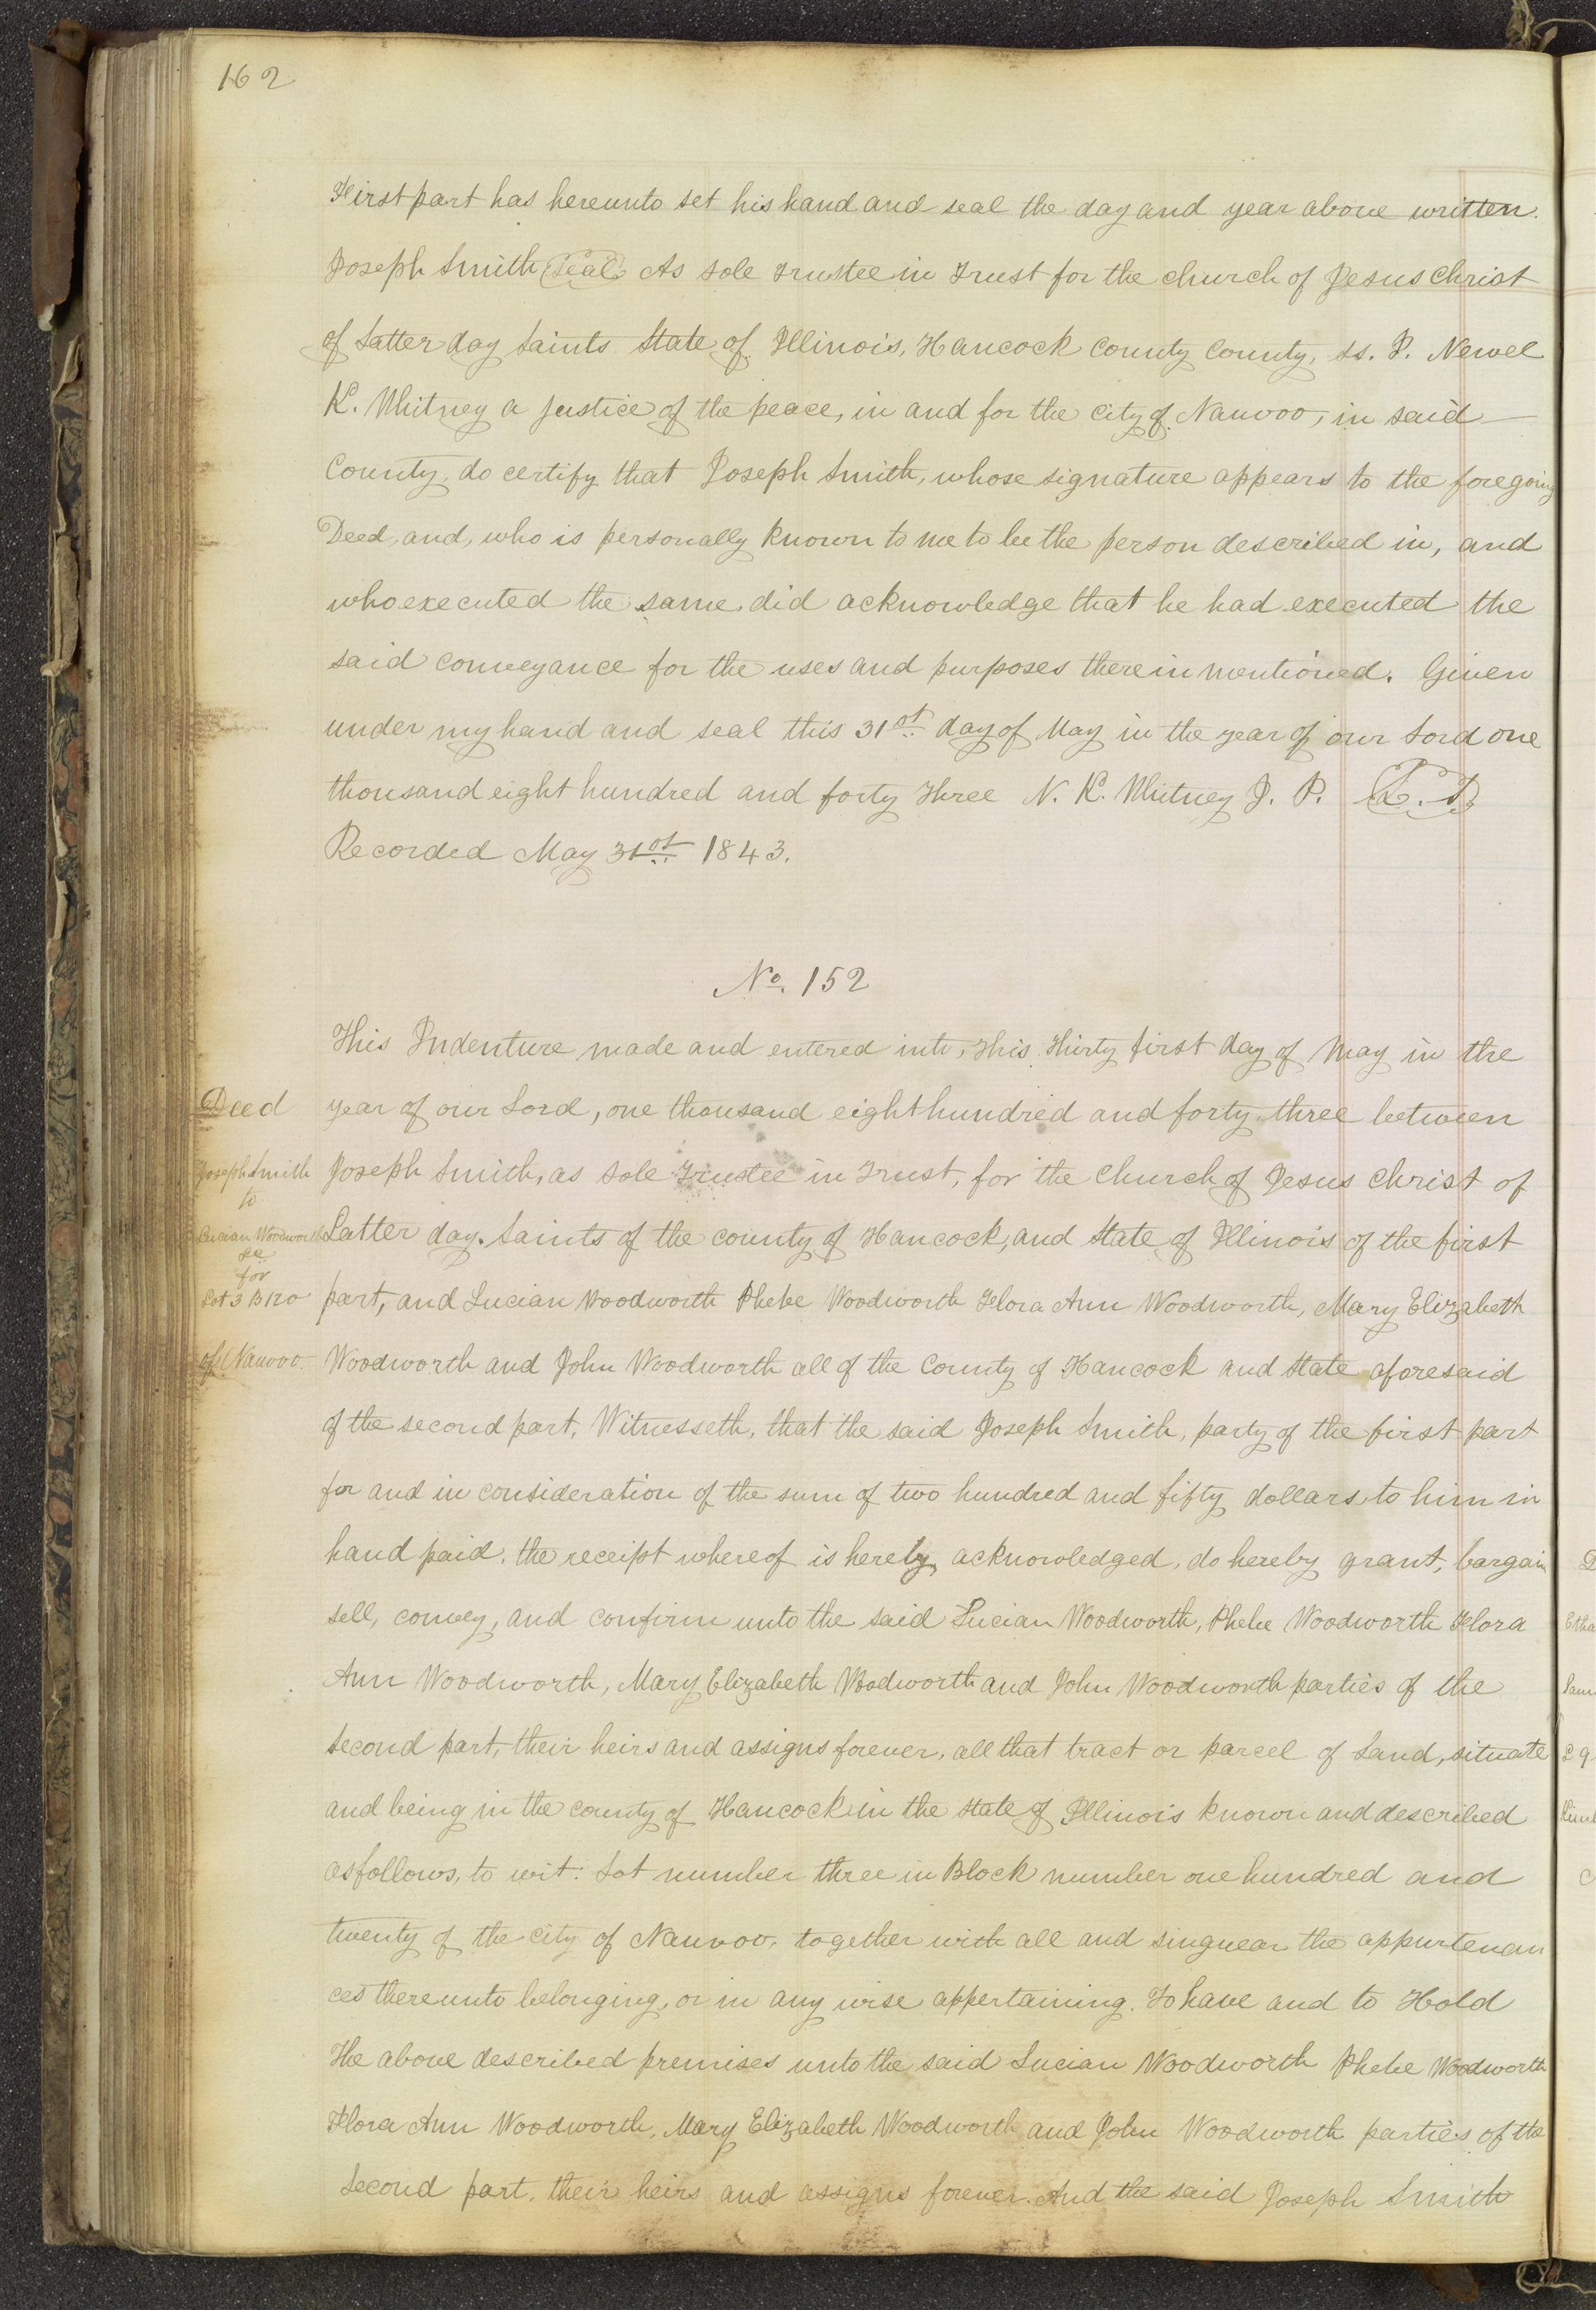 162
First part has hereunto set his hand and seal the day and year above written.
Joseph Smith Seal As sole trustee in Trust for the church of Jesus Christ
of Latter day Saints State of Illinois, Hancock County County, ss. I. Newel
K. Whitney a justice of the peace, in and for the city of Nauvoo, in said
County, do certify that Joseph Smith, whose signature appears to the foregoing
Deed, and, who is personally known to me to be the person described in, and
who executed the same, did acknowledge that he had executed the
said conveyance for the uses and purposes therein mentioned. Given
under my hand and seal this 31st day of May in the year of our Lord one
thousand eight hundred and forty three N. K. Whitney J. P.
Recorded May 31st 1843.
No. 152
This Indenture made and entered into, this thirty first day of May in the
Deed
year of our Lord, one thousand eight hundred and forty three between
Joseph Smith
to
Joseph Smith, as sole Trustee in Trust, for the Church of Jesus Christ of
Lucian Woodworth
&c
for
Latter day. Saints of the county of Hancock, and State of Illinois of the first
Lot 3 B 120
part, and Lucian Woodworth Phebe Woodworth Flora Ann Woodworth, Mary Elizabeth
of Nauvoo.
Woodworth and John Woodworth all of the County of Hancock and State aforesaid
of the second part, Witnesseth, that the said Joseph Smith, party of the first part
for and in consideration of the sum of two hundred and fifty dollars, to him in
hand paid, the receipt whereof is hereby acknowledged, do hereby grant, bargain
sell, convey, and confirm unto the said Lucian Woodworth, Phebe Woodworth Flora
Ann Woodworth, Mary Elizabeth Wodworth and John Woodworth parties of the
second part, their heirs and assigns forever, all that tract or parcel of Land, situate
and being in the county of Hancock in the state of Illinois known and described
as follows, to wit: Lot number three in Block number one hundred and
twenty of the city of Nauvoo, together with all and singuear the appurtenan
ces thereunto belonging, or in any wise appertaining. To have and to Hold
The above described premises unto the said Lucian Woodworth Phebe Woodworth
Flora Ann Woodworth, Mary Elizabeth Woodworth and John Woodworth parties of the
second part, their heirs and assigns forever. And the said Joseph Smith